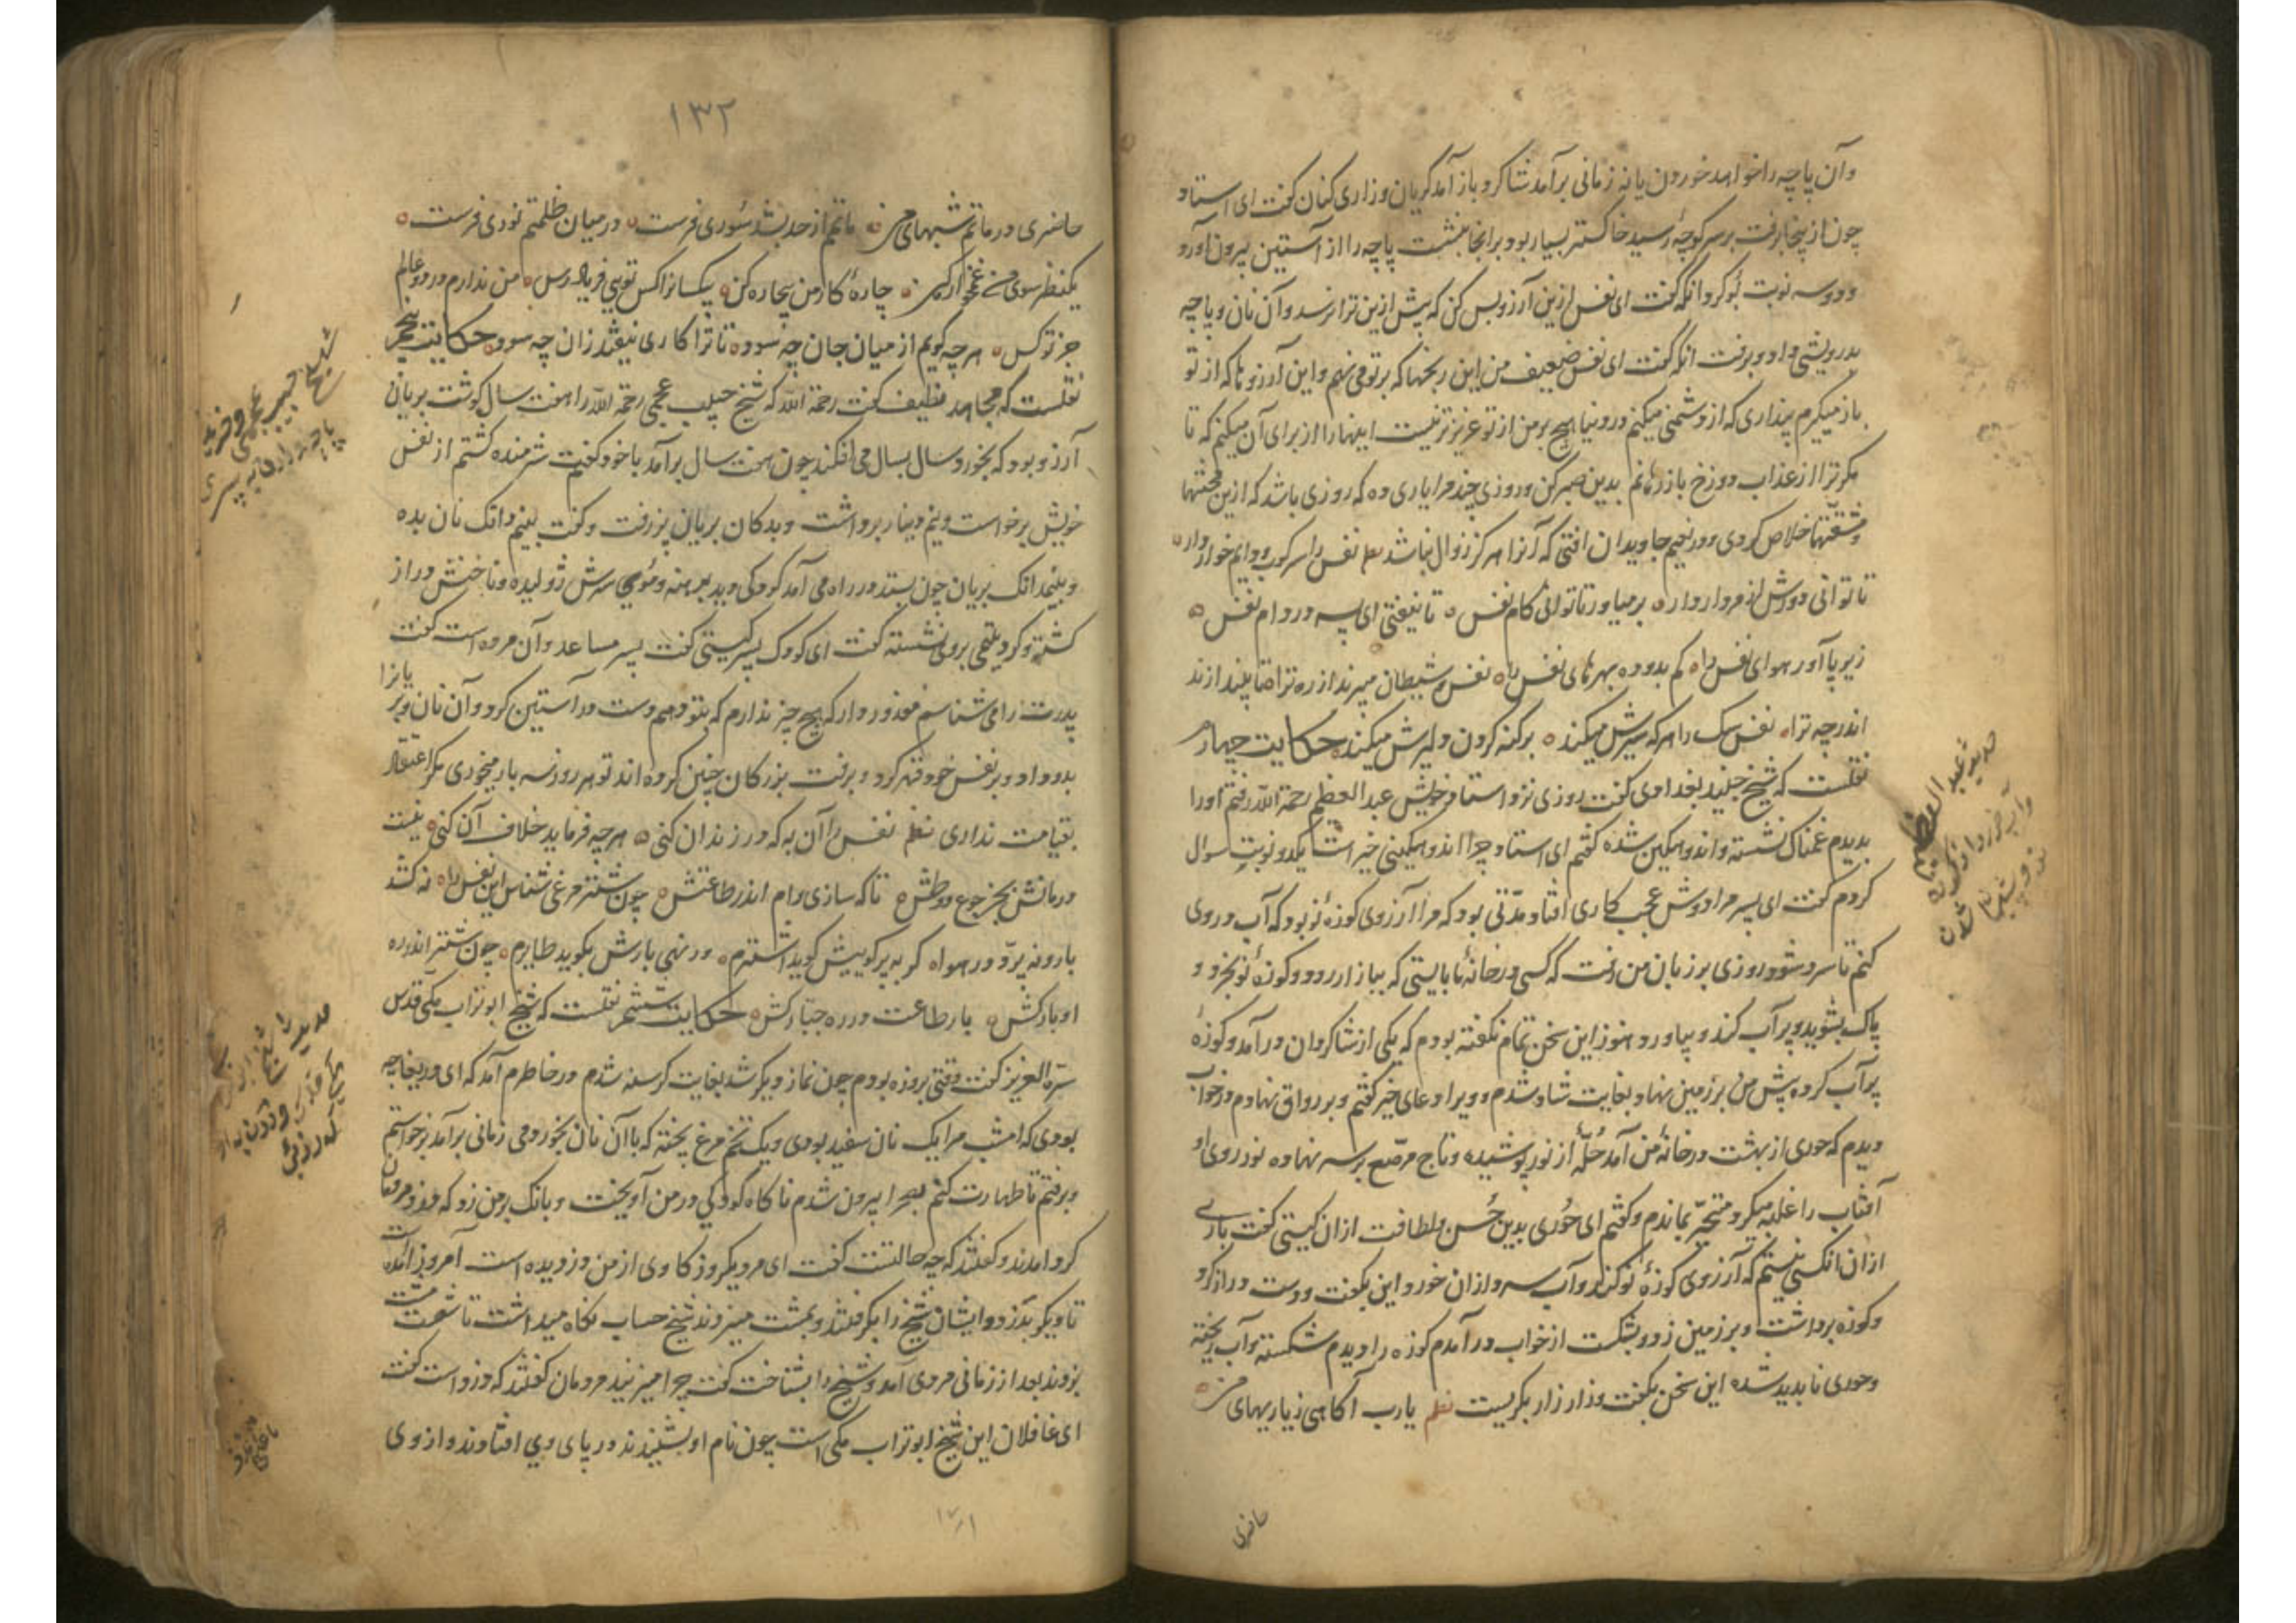 وآن پاچه را خواهد خوردن یا نه زمانی برآمد شاکرد باز آمد کریان و زاری کنان کفت ای استاد
چون از پنجا برفت بر سر کوچهٔ رسید خاکستر بسیار بود برانجا بنشست پاچه را از آستین بیرون آورد
و دو سه نوبت بوکرد وانکه کفت ای نفس ازین آرزو بس کن که پیش ازین ترا نرسد وآن نان و پاچه
بدرویشی داد و برفت انکه کفت ای نفس ضعیف من این رنجها که بر تو می نهم و این آرزوها که از تو
باز میکیرم پنداری که از دشمنی میکنم در دنیا هیچ بر من از تو عزیزتر نیست اینها را از برای آن میکنم که تا
مکر ترا از عذاب دوزخ باز رهانم بدین صبر کن و روزی چند مرا یاری ده که روزی باشد که ازین محنتها
ومشقتها خلاص کردی و در نعیم جاویدان افتی که آنرا هرکز زوال نباشد نظم نفس را سرکوب و دایم خوار دار
تا توانی دورش از مردار دار برمیاور تا توانی کام نفس تا نیفتی ای پسر در دام نفس
زیر پا آور هوای نفس را کم بدو ده بهرهای نفس را نفس و شیطان میبرند از ره ترا تا بیندازند
اندر چه ترا نفس سک را هر که سیرش میکند بر کنه کردن دلیرش میکند حکایت چهارم
نقلست که شیخ جنید بغدادی کفت روزی نزد استاد خویش عبد العظیم رحمة الله رفتم او را
بدیدم غمناک نشسته و اندوهکین شده کفتم ای استاد چرا اندوهکینی خیر است یکدو نوبت سوال
کردم کفت ای پسر مرا دوش عجب کاری افتاد مدتی بود که مرا آرزوی کوزهٔ نو بود که آب در وی
کنم تا سرد شود روزی بر زبان من رفت که کسی در خانهٔ ما بایستی که ببازار رود و کوزهٔ نو بخرد و
پاک بشوید و پر آب کند و بیاورد هنوز این سخن تمام نکفته بودم که یکی از شاکردان درآمد و کوزهٔ
پر آب کرده پیش من بر زمین نهاد بغایت شاد شدم و ویرا دعای خیر کفتم و بر رواق نهادم در خواب
دیدم که حوری از بهشت در خانهٔ من آمد حلّهٔ از نور پوشیده و تاج مرصع بر سر نهاده نور روی او
آفتاب را غلبه میکرد متحیر بماندم و کفتم ای حوری بدین حسن و لطافت ازان کیستی کفت باری
ازان آنکس نیستم که آرزوی کوزهٔ نو کند و آب سرد ازان خورد این بکفت و دست دراز کرد
و کوزه برداشت و بر زمین زد و بشکست از خواب درآمدم کوزه را دیدم شکسته و آب ریخته
و حوری ناپدید شده این سخن بکفت و زار زار بکریست نظم یارب آکاهی ز یاربهای من
حاضری
۱۳۲
حاضری در ماتم شبهای من ماتم از حد بشد سوری فرست در میان ظلمتم نوری فرست
یکنظر سوی من غمخوار کن چارهٔ کار من بیچاره کن بیکسانرا کس تویی فریاد رس من ندارم در دو عالم
جز تو کس هر چه کویم از میان جان چه سود تا ترا کاری نیفتد زان چه سود حکایت پنجم
نقلست که مجاهد نظیف کفت رحمة الله که شیخ حبیب عجمی رحمة الله را هفت سال کوشت بریان
آرزو بود که بخورد سال بسال می افکند چون هفت سال برآمد با خود کفت شرمنده کشتم از نفس
خویش برخاست و نیم دینار برداشت و بدکان بریان پز رفت و کفت بنیم دانک نان بده
و بنیم دانک بریان چون بستد در راه می آمد کودکی دید برهنه و موی سرش ژولیده و ناخنش دراز
کشته و کرد یتیمی بروی نشسته کفت ای کودک پسر کیستی کفت پسر مساعد و آن مرده است کفت
پدرت را می شناسم معذور دار که هیچ چیز ندارم که بتو دهم دست در آستین کرد و آن نان و بریانرا
بدو داد و بر نفس خود قهر کرد و برفت بزرکان چنین کرده اند تو هر روز سه بار میخوری مکر اعتقاد
بقیامت نداری نظم نفس را آن به که در زندان کنی هر چه فرماید خلاف آن کنی نیست
درمانش بجز جوع و عطش تا که سازی رام اندر طاعتش چون شتر مرغی شناس این نفس را نه کشد
بار و نه پرد در هوا کر به پر کوییش کوید اشترم ور نهی بارش بکوید طایرم چون شتر اندر ره
او بار کش بار طاعت در ره جبار کش حکایت ششم نقلست که شیخ ابوتراب مکی قدس
سره العزیز کفت وقتی بروزه بودم چون نماز دیکر شد بغایت کرسنه شدم در خاطرم آمد که ای دریغا چه
بودی که امشب مرا یک نان سفید بودی و یک تخم مرغ پخته که با آن نان بخوردمی زمانی برآمد برخواستم
و برفتم تا طهارت کنم بصحرا بیرون شدم ناکاه کودکی در من آویخت و بانک بر من زد که دزد مردمان
کرد آمدند و کفتند که چه حالتست کفت ای مرد یکروز کاوی از من دزدیده است امروز آمده است
تا دیکر بدزدد ایشان شیخ را بکرفتند و بمشت میزدند شیخ حساب نکاه میداشت تا شصت مشت
بزدند بعد از زمانی مردی آمد و شیخ را بشناخت کفت چرا میزنید مردمان کفتند که دزد است کفت
ای غافلان این شیخ ابوتراب مکی است چون نام او بشنیدند در پای وی افتادند و از وی